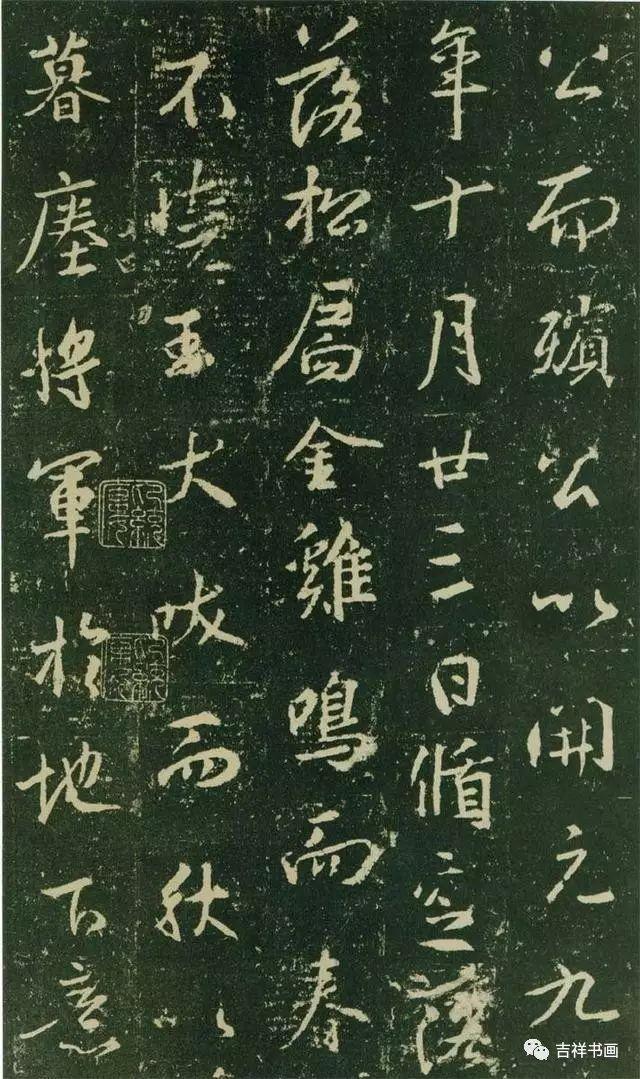 公而殯公以開元九
年十月廿三日循空落
落松扃金雞鳴而春
不曉玉犬吠而秋以
暮塵將軍於地百意
吉祥书画